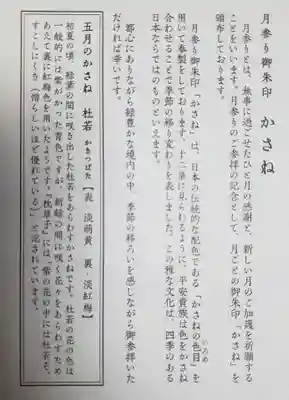 月参り御朱印 かさね
月参りとは、無事に過ごせたひと月の感謝と、新しい月のご加護を祈願する
ことをいいます。月参りのご参拝の記念として、月ごとの御朱印「かさね」を
頒布しております。
月参り御朱印「かさね」は、日本の伝統的な配色である「かさねの色目」を
いろめ
用いて奉製をしております。十二単に見られるように、平安貴族は色をかさね
合わせることで季節の移り変わりを表しました。この雅な文化は、四季のある
日本ならではのものといえます。
都心にありながら緑豊かな境内の中、季節の移ろいを感じながら御参拝いた
だければ幸いです。
五月のかさね 杜若 かきつばた【表 淡萌黄 裏 淡紅梅】
初夏の頃、緑葉の間に咲き出した杜若をあらわすかさねです。杜若の花の色は
一般的には紫がかった青色ですが、新緑の間に咲く花々をあらわすため
あえて裏に紅梅色を用いたようです。『枕草子』には、「紫の花の中には杜若ぞ、
すこしにくき(憎らしいほど優れている)」と記されています。